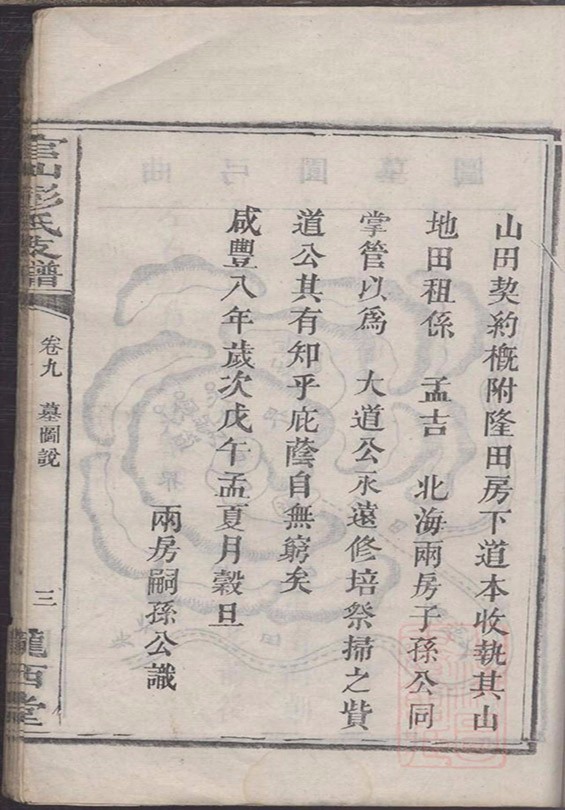 山田契約概附隆田房下道本收執其山
地田租係 孟吉 北海兩房子孫公同
掌管以爲 大道公永遠修培祭掃之貲
道公其有知乎庇蔭自無窮矣
咸豐八年歲次戊午孟夏月穀旦
兩房嗣孫公識
官山彭氏支譜
卷九 墓圖說
三
隴西堂